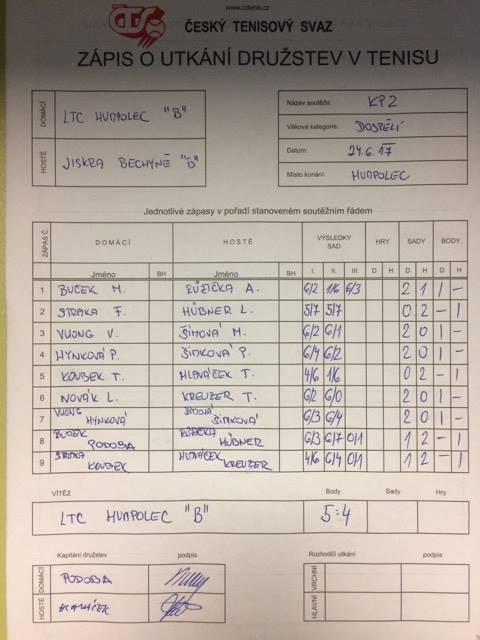 www.cztenis.cz
ČTS ČESKÝ TENISOVÝ SVAZ
ZÁPIS O UTKÁNÍ DRUŽSTEV V TENISU
DOMÁCÍ LTC HUMPOLEC "B"
HOSTÉ JISKRA BECHYNĚ "B"
Název soutěže: KP2
Věková kategorie: DOSPĚLÍ
Datum: 24.6.17
Místo konání: HUMPOLEC
Jednotlivé zápasy v pořadí stanoveném soutěžním řádem
ZÁPAS Č. DOMÁCÍ HOSTÉ VÝSLEDKY SAD HRY SADY BODY
Jméno BH Jméno BH I. II. III. D H D H D H
1 BUČEK M. RŮŽIČKA A. 6/2 1/6 6/3 2 1 1 –
2 STRAKA F. HÜBNER L. 5/7 5/7 0 2 – 1
3 VUONG V. ŠÍMOVÁ M. 6/2 6/1 2 0 1 –
4 HYNKOVÁ P. ŠIMKOVÁ P. 6/4 6/2 2 0 1 –
5 KOUBEK T. HLAVÁČEK T. 4/6 1/6 0 2 – 1
6 NOVÁK L. KREUZER T. 6/2 6/0 2 0 1 –
7 VUONG HYNKOVÁ ŠÍMOVÁ ŠIMKOVÁ 6/3 6/4 2 0 1 –
8 BUČEK PODODA RŮŽIČKA HÜBNER 6/3 6/7 0/1 1 2 – 1
9 STRAKA KOUBEK HLAVÁČEK KREUZER 4/6 6/4 0/1 1 2 – 1
VÍTĚZ Body Sady Hry
LTC HUMPOLEC "B" 5:4
Kapitáni družstev podpis
DOMÁCÍ PODODA
HOSTÉ HLAVÁČEK
Rozhodčí utkání podpis
VRCHNÍ
HLAVNÍ